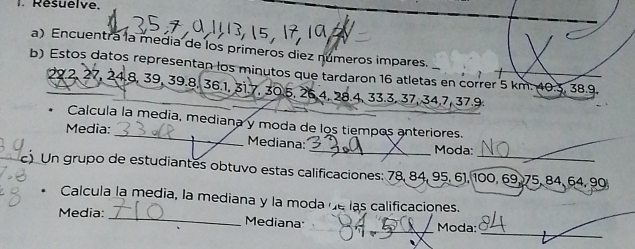 1. Resuelve.
1, 3, 5, 7, 9, 11, 13, 15, 17, 19
a) Encuentra la media de los primeros diez números impares.
b) Estos datos representan los minutos que tardaron 16 atletas en correr 5 km: 40.5, 38.9,
29.2, 27, 24.8, 39, 39.8, 36.1, 31.7, 30.5, 26.4, 28.4, 33.3, 37, 34.7, 37.9.
• Calcula la media, mediana y moda de los tiempos anteriores.
Media: Mediana: 33.9 Moda: NO
c) Un grupo de estudiantes obtuvo estas calificaciones: 78, 84, 95, 61, 100, 69, 75, 84, 64, 90.
• Calcula la media, la mediana y la moda de las calificaciones.
Media: 710 Mediana: Moda: 84